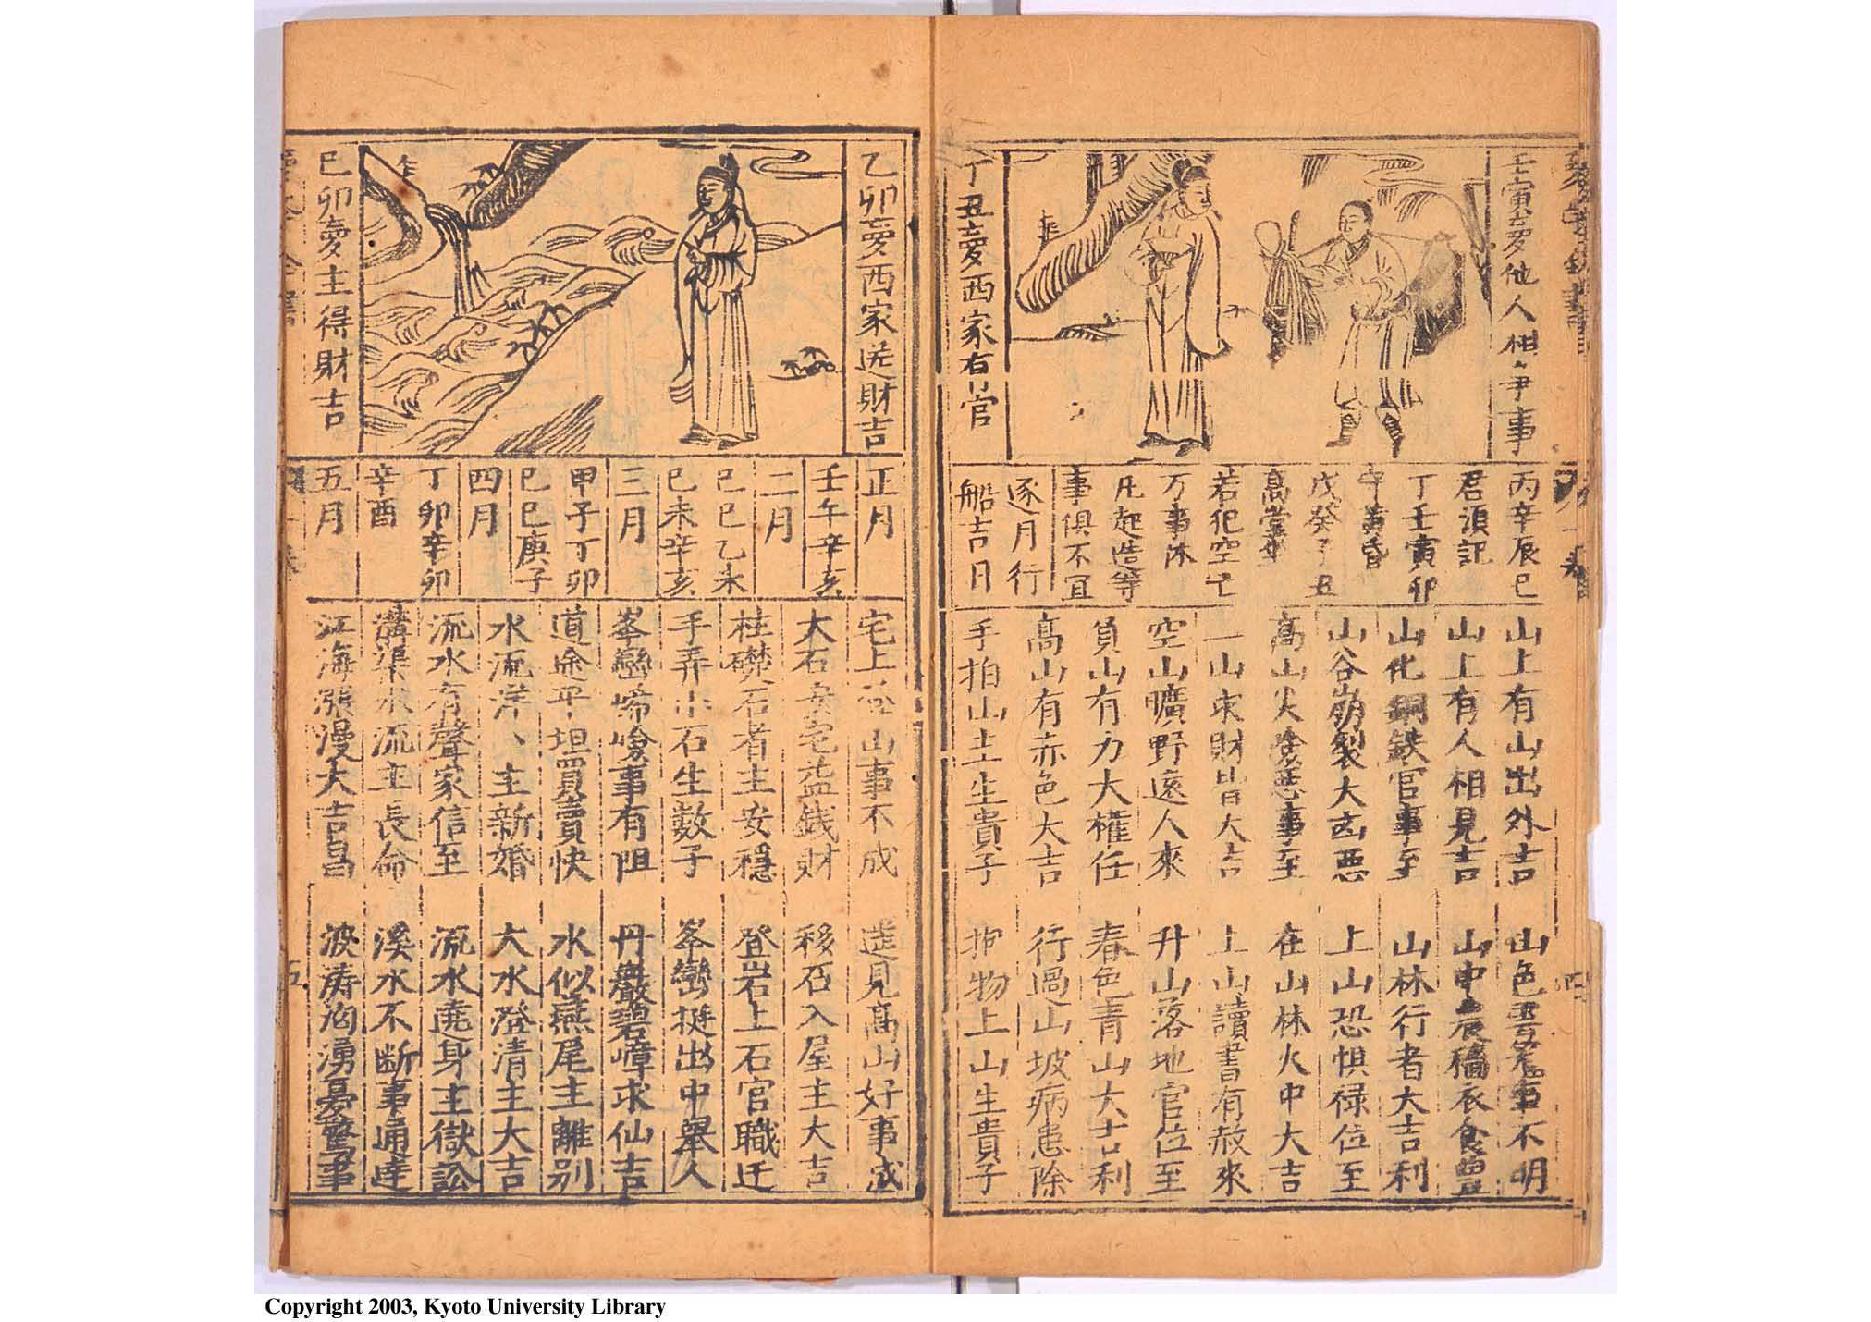 壬寅夢他人相爭事
丁丑夢西家有口官
丙辛辰巳
君須記
丁壬寅卯
黃昏
戊癸子丑
高堂
若犯空亡
万事休
凡起造等
事俱不宜
逐月行
船吉日
山上有山出外吉
山色不明
山上有人相見吉
衣食豐
山化銅鉄官事至
山林行者大吉利
山谷崩裂大凶惡
上山恐惧禄位至
高山火險惡事至
在山林火中大吉
一山求財皆大吉
上山讀書有赦來
空山曠野遠人來
升山落地官位至
負山有力大權任
春色青山大吉利
高山有赤色大吉
行過山坡病患除
手拍山土生貴子
抱物上山生貴子
乙卯夢西家送財吉
己卯夢主得財吉
正月
壬午辛亥
二月
己巳乙未
己未辛亥
三月
甲子丁卯
己巳庚子
四月
丁卯辛卯
辛酉
五月
宅上 山事不成
遥見高山好事成
大石安宅益錢財
移石入屋主大吉
柱礎石者主安穩
登岩上石官職迁
手弄小石生数子
峯巒挺出中舉人
峯巒崎峻事有阻
丹巖碧嶂求仙吉
道途平坦買賣快
水似燕尾主離别
水流洋々主新婚
大水澄清主大吉
流水有聲家信至
流水遶身主獄訟
溝渠水流主長命
溪水不断事通達
江海漲漫大吉昌
波涛洶湧憂驚事
五
Copyright 2003, Kyoto University Library